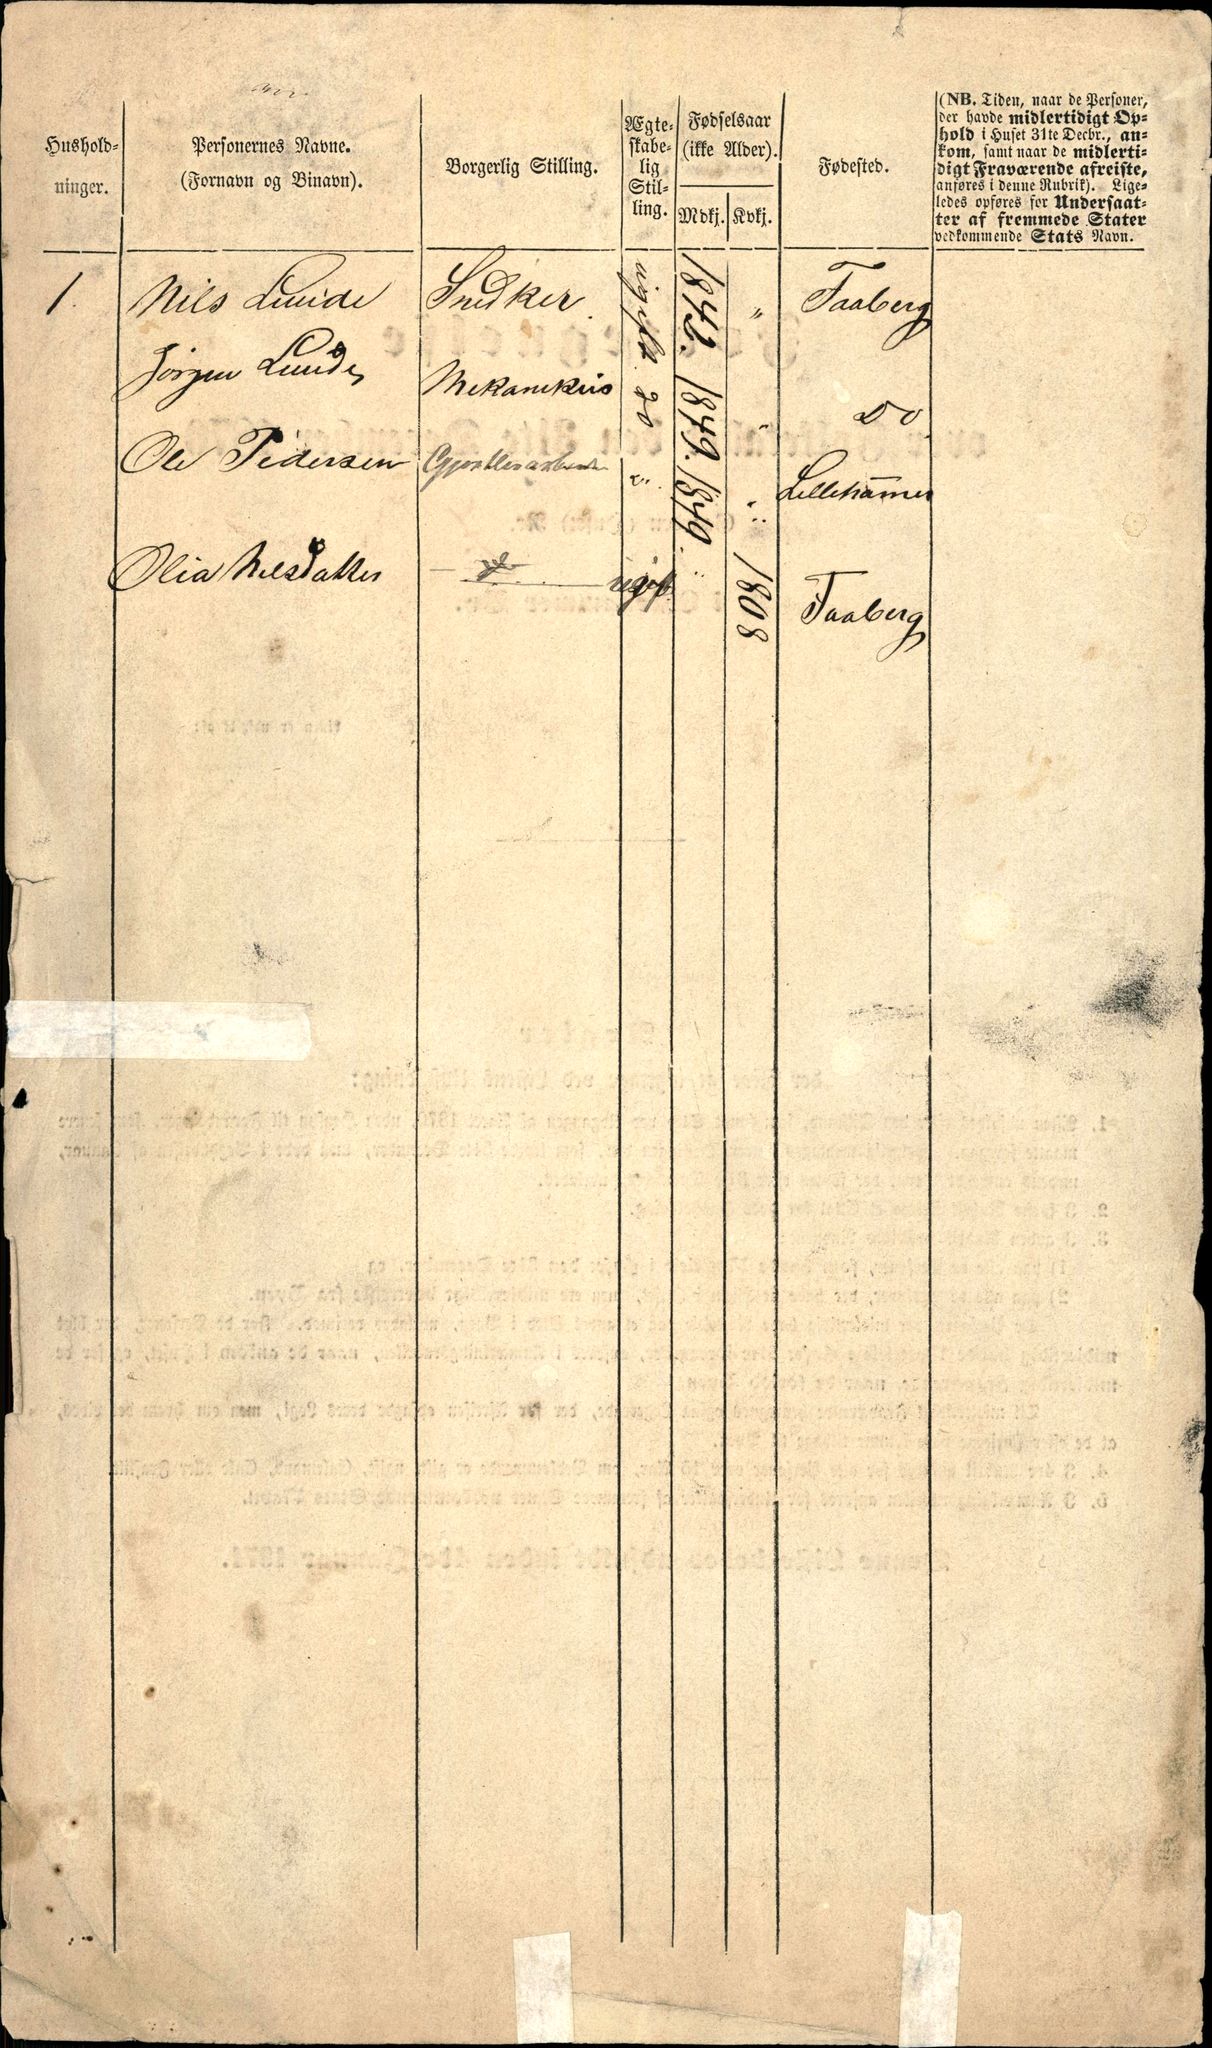 Hushold-
ninger.
Personernes Navne.
(Fornavn og Binavn).
Borgerlig Stilling.
Ægte-
skabe-
lig
Stil-
ling.
Fødselsaar
(ikke Alder).
Mdkj. Kvkj.
Fødested.
(NB. Tiden, naar de Personer,
der havde midlertidigt Op-
hold i Huset 31te Decbr., an-
kom, samt naar de midlerti-
digt Fraværende afreiste,
anføres i denne Rubrik). Lige-
ledes opføres for Undersaat-
ter af fremmede Stater
vedkommende Stats Navn.
1. Nils Lunde Snedker. ugift 1842. " Taaberg
Jørgen Lunde Mekanekus do 1849. " Do
Ole Pedersen " 1849. " Lillehamer
Olia Nilsdatter ugift " 1808 Taaberg